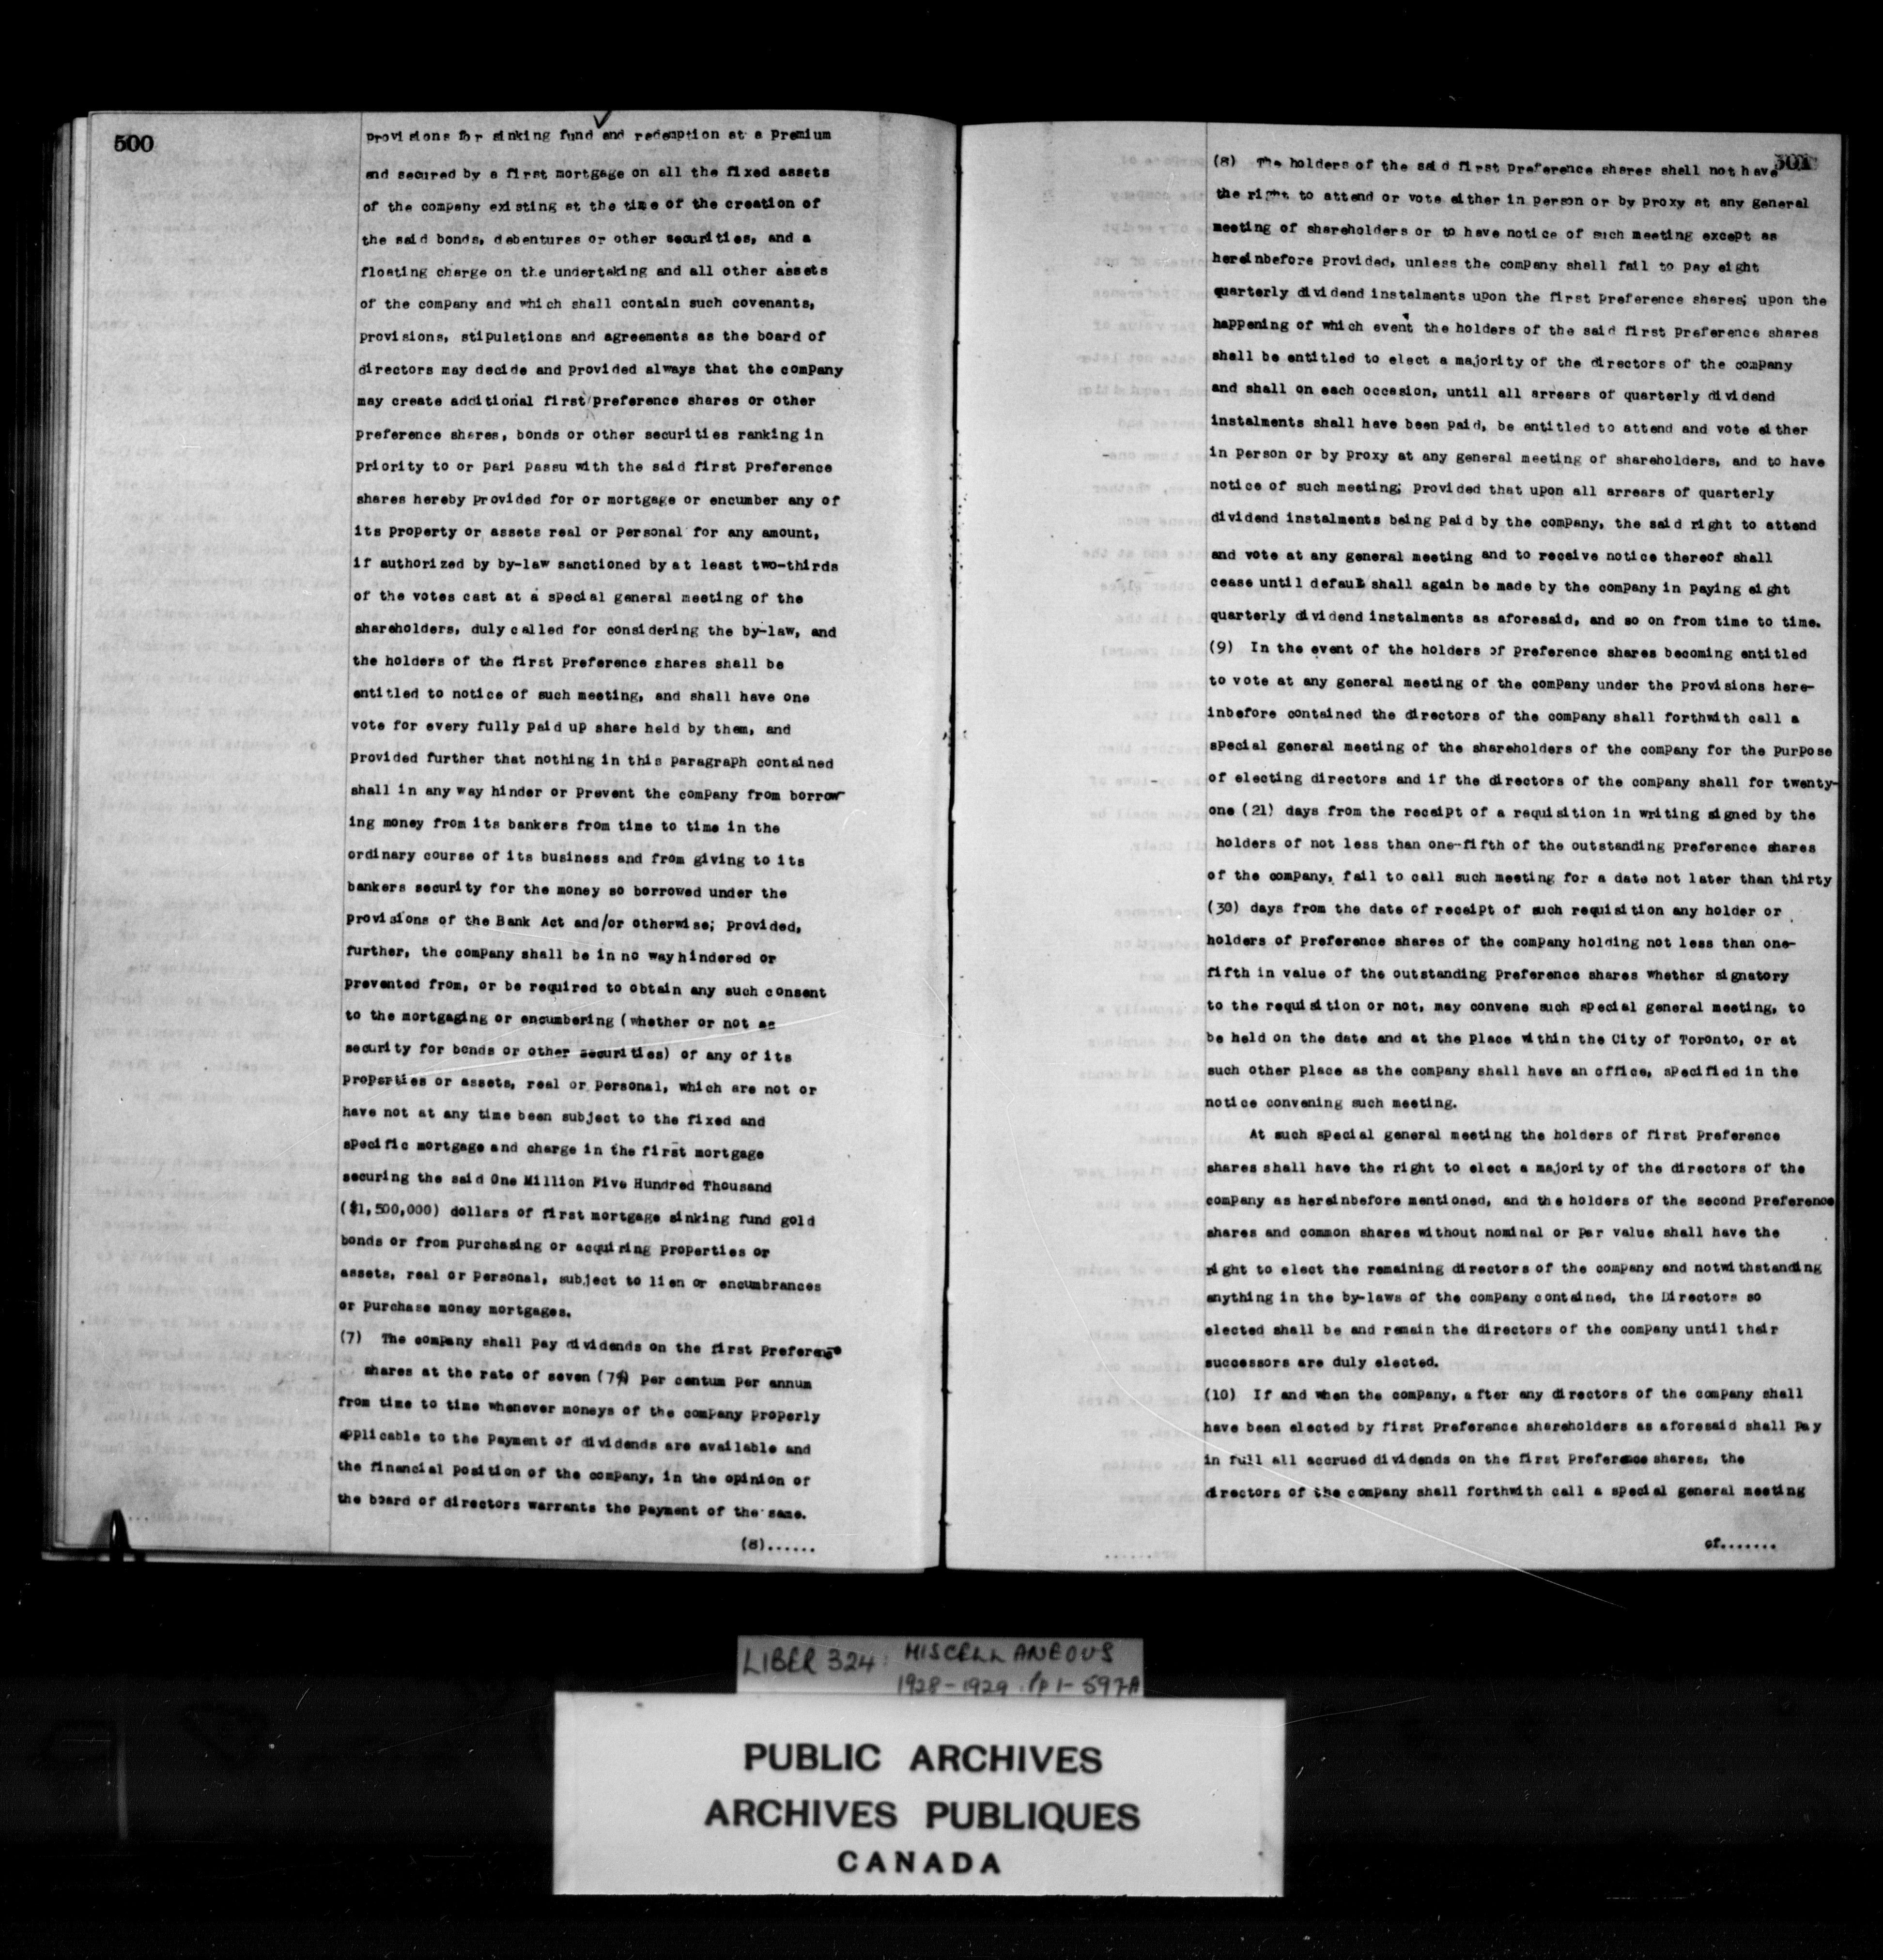 500
provisions for sinking fund and redemption at a premium
and secured by a first mortgage on all the fixed assets
of the company existing at the time of the creation of
the said bonds, debentures or other securities, and a
floating charge on the undertaking and all other assets
of the company and which shall contain such covenants,
provisions, stipulations and agreements as the board of
directors may decide and provided always that the company
may create additional first preference shares or other
preference shares, bonds or other securities ranking in
priority to or pari passu with the said first preference
shares hereby provided for or mortgage or encumber any of
its property or assets real or personal for any amount,
if authorized by by-law sanctioned by at least two-thirds
of the votes cast at a special general meeting of the
shareholders, duly called for considering the by-law, and
the holders of the first preference shares shall be
entitled to notice of such meeting, and shall have one
vote for every fully paid up share held by them, and
provided further that nothing in this paragraph contained
shall in any way hinder or prevent the company from borrow
ing money from its bankers from time to time in the
ordinary course of its business and from giving to its
bankers security for the money so borrowed under the
provisions of the Bank Act and/or otherwise; provided,
further, the company shall be in no way hindered or
prevented from, or be required to obtain any such consent
to the mortgaging or encumbering (whether or not as
security for bonds or other securities) of any of its
properties or assets, real or personal, which are not or
have not at any time been subject to the fixed and
specific mortgage and charge in the first mortgage
securing the said One Million Five Hundred Thousand
($1,500,000) dollars of first mortgage sinking fund gold
bonds or from purchasing or acquiring properties or
assets, real or personal, subject to lien or encumbrances
or purchase money mortgages.
(7) The company shall pay dividends on the first preference
shares at the rate of seven (7%) per centum per annum
from time to time whenever moneys of the company properly
applicable to the payment of dividends are available and
the financial position of the company, in the opinion of
the board of directors warrants the payment of the same.
(8)......
501
(8) The holders of the said first preference shares shall not have
the right to attend or vote either in person or by proxy at any general
meeting of shareholders or to have notice of such meeting except as
hereinbefore provided, unless the company shall fail to pay eight
quarterly dividend instalments upon the first preference shares; upon the
happening of which event the holders of the said first preference shares
shall be entitled to elect a majority of the directors of the company
and shall on each occasion, until all arrears of quarterly dividend
instalments shall have been paid, be entitled to attend and vote either
in person or by proxy at any general meeting of shareholders, and to have
notice of such meeting; provided that upon all arrears of quarterly
dividend instalments being paid by the company, the said right to attend
and vote at any general meeting and to receive notice thereof shall
cease until default shall again be made by the company in paying eight
quarterly dividend instalments as aforesaid, and so on from time to time.
(9) In the event of the holders of preference shares becoming entitled
to vote at any general meeting of the company under the provisions here-
inbefore contained the directors of the company shall forthwith call a
special general meeting of the shareholders of the company for the purpose
of electing directors and if the directors of the company shall for twenty-
one (21) days from the receipt of a requisition in writing signed by the
holders of not less than one-fifth of the outstanding preference shares
of the company, fail to call such meeting for a date not later than thirty
(30) days from the date of receipt of such requisition any holder or
holders of preference shares of the company holding not less than one-
fifth in value of the outstanding preference shares whether signatory
to the requisition or not, may convene such special general meeting, to
be held on the date and at the place within the City of Toronto, or at
such other place as the company shall have an office, specified in the
notice convening such meeting.
At such special general meeting the holders of first preference
shares shall have the right to elect a majority of the directors of the
company as hereinbefore mentioned, and the holders of the second preference
shares and common shares without nominal or par value shall have the
right to elect the remaining directors of the company and notwithstanding
anything in the by-laws of the company contained, the Directors so
elected shall be and remain the directors of the company until their
successors are duly elected.
(10) If and when the company, after any directors of the company shall
have been elected by first preference shareholders as aforesaid shall pay
in full all accrued dividends on the first preference shares, the
directors of the company shall forthwith call a special general meeting
of.......
LIBER 324: MISCELLANEOUS
1928-1929. Pp 1-597A
PUBLIC ARCHIVES
ARCHIVES PUBLIQUES
CANADA